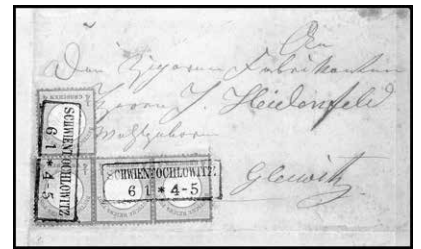 An
Den Cigarren Fabrikanten
Herrn J. Heidenfeld
Wohlgeboren
Gleiwitz
SCHWIENTOCHLOWITZ
6 1 * 4-5
SCHWIENTOCHLOWITZ
6 1 * 4-5